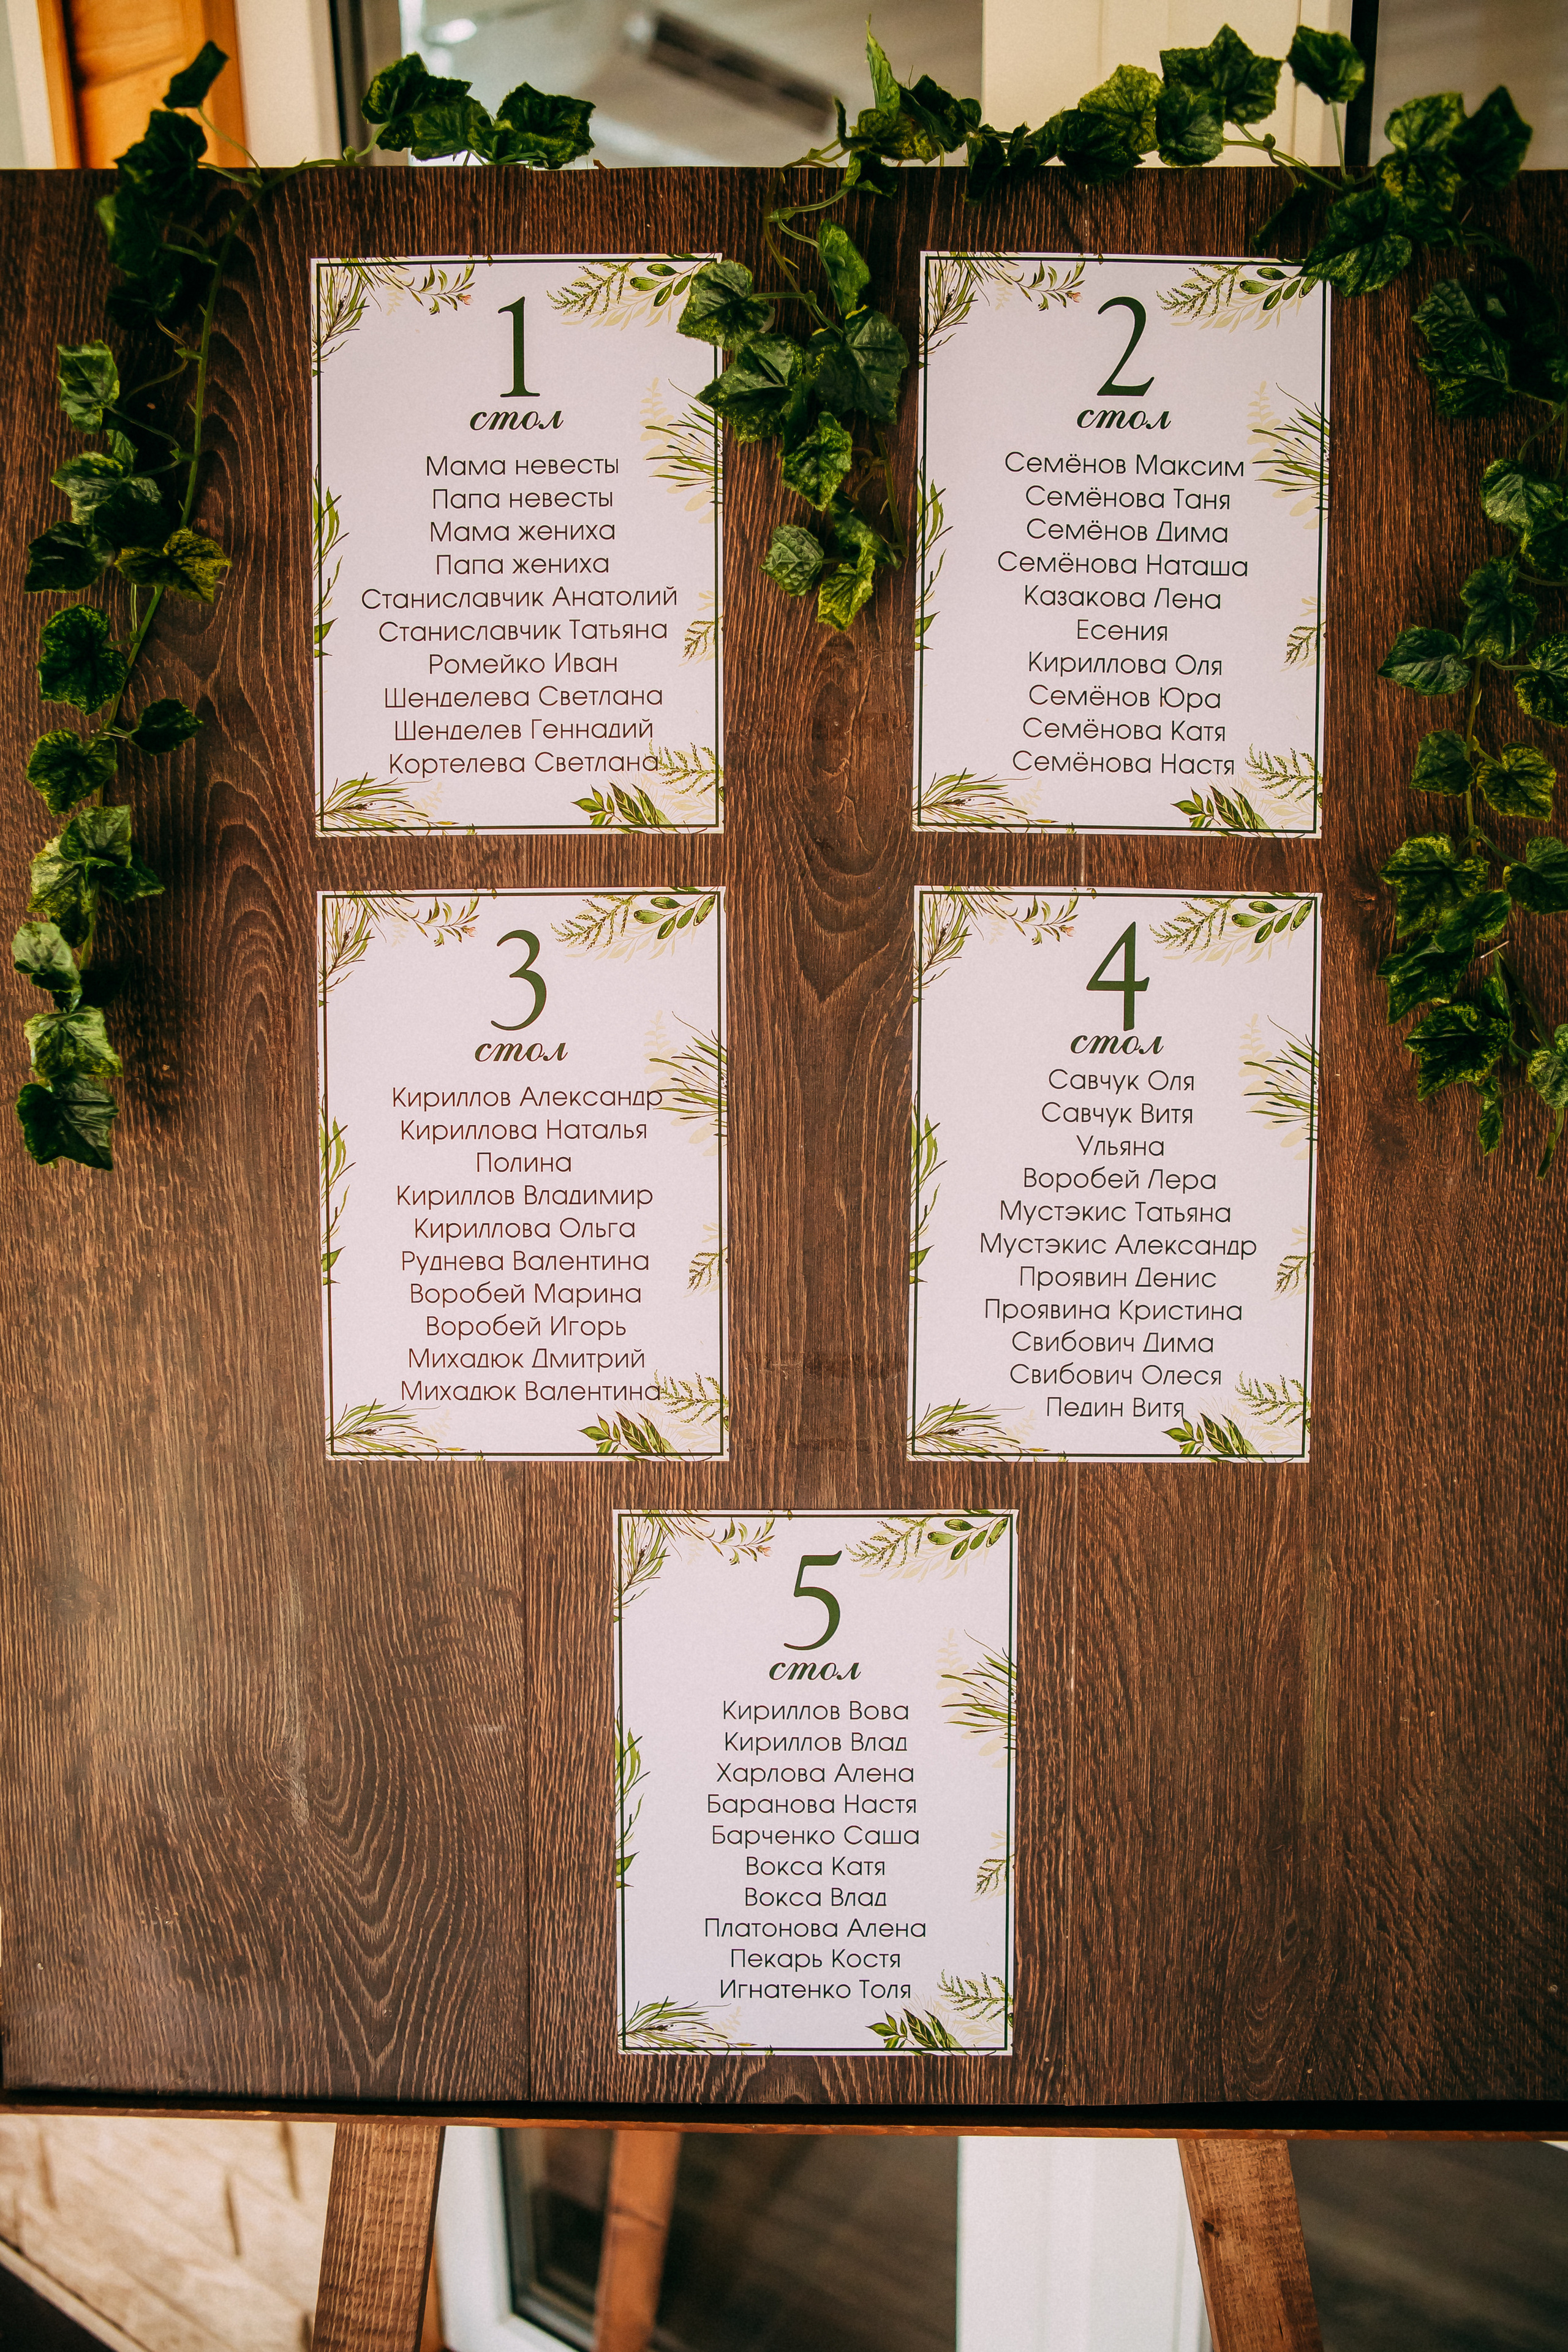 1
стол
Мама невесты
Папа невесты
Мама жениха
Папа жениха
Станиславчик Анатолий
Станиславчик Татьяна
Ромейко Иван
Шенделева Светлана
Шенделев Геннадий
Кортелева Светлана
2
стол
Семёнов Максим
Семёнова Таня
Семёнов Дима
Семёнова Наташа
Казакова Лена
Есения
Кириллова Оля
Семёнов Юра
Семёнова Катя
Семёнова Настя
3
стол
Кириллов Александр
Кириллова Наталья
Полина
Кириллов Владимир
Кириллова Ольга
Руднева Валентина
Воробей Марина
Воробей Игорь
Михадюк Дмитрий
Михадюк Валентина
4
стол
Савчук Оля
Савчук Витя
Ульяна
Воробей Лера
Мустэкис Татьяна
Мустэкис Александр
Проявин Денис
Проявина Кристина
Свибович Дима
Свибович Олеся
Педин Витя
5
стол
Кириллов Вова
Кириллов Влад
Харлова Алена
Баранова Настя
Барченко Саша
Вокса Катя
Вокса Влад
Платонова Алена
Пекарь Костя
Игнатенко Толя